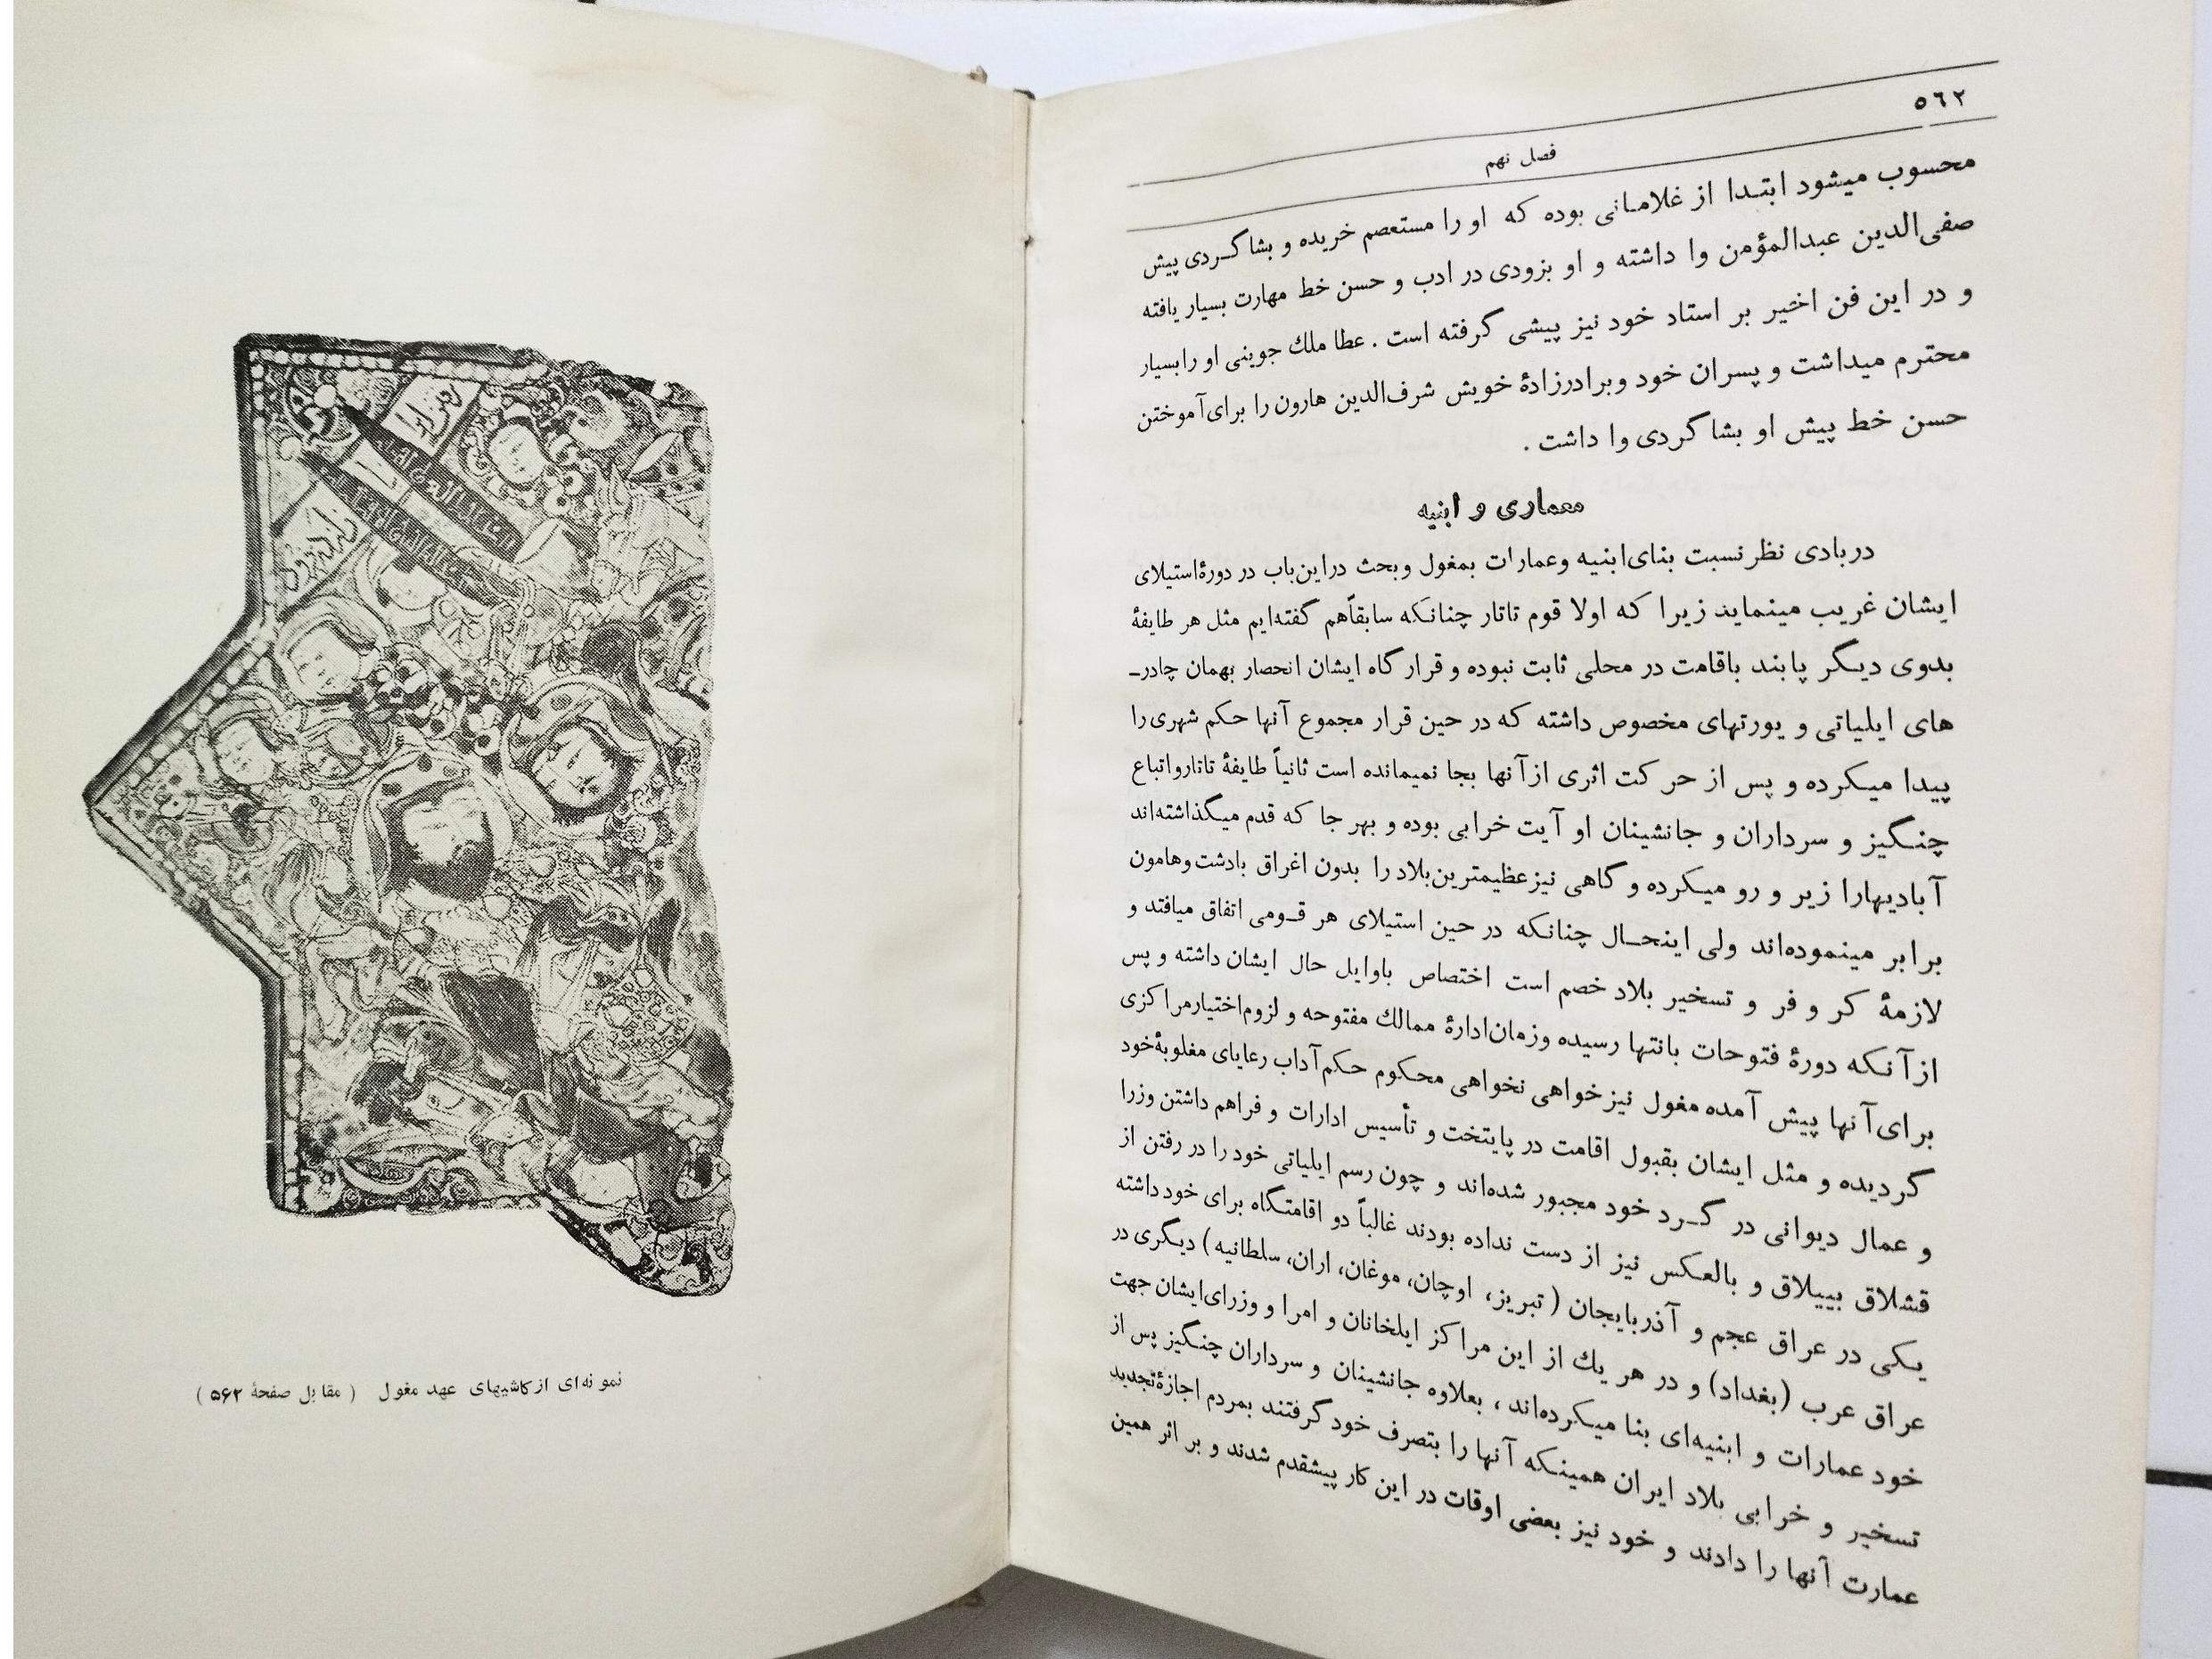 ٥٦٢
فصل نهم
محسوب میشود ابتدا از غلامانی بوده که او را مستعصم خریده و بشاگردی پیش
صفی‌الدین عبدالمؤمن وا داشته و او بزودی در ادب و حسن خط مهارت بسیار یافته
و در این فن اخیر بر استاد خود نیز پیشی گرفته است . عطا ملك جوینی او را بسیار
محترم میداشت و پسران خود و برادرزادهٔ خویش شرف‌الدین هارون را برای آموختن
حسن خط پیش او بشاگردی وا داشت .
معماری و ابنیه
در بادی نظر نسبت بنای ابنیه و عمارات بمغول و بحث در این باب در دورهٔ استیلای
ایشان غریب مینماید زیرا که اولا قوم تاتار چنانکه سابقاً هم گفته‌ایم مثل هر طایفهٔ
بدوی دیگر پابند باقامت در محلی ثابت نبوده و قرارگاه ایشان انحصار بهمان چادر-
های ایلیاتی و یورتهای مخصوص داشته که در حین قرار مجموع آنها حکم شهری را
پیدا میکرده و پس از حرکت اثری از آنها بجا نمیمانده است ثانیاً طایفهٔ تاتار و اتباع
چنگیز و سرداران و جانشینان او آیت خرابی بوده و بهر جا که قدم میگذاشته‌اند
آبادیها را زیر و رو میکرده و گاهی نیز عظیمترین بلاد را بدون اغراق بادشت و هامون
برابر مینموده‌اند ولی اینحال چنانکه در حین استیلای هر قومی اتفاق میافتد و
لازمهٔ کر و فر و تسخیر بلاد خصم است اختصاص باوایل حال ایشان داشته و پس
از آنکه دورهٔ فتوحات بانتها رسیده و زمان ادارهٔ ممالك مفتوحه و لزوم اختیار مراکزی
برای آنها پیش آمده مغول نیز خواهی نخواهی محکوم حکم آداب رعایای مغلوبهٔ خود
گردیده و مثل ایشان بقبول اقامت در پایتخت و تأسیس ادارات و فراهم داشتن وزرا
و عمال دیوانی در گرد خود مجبور شده‌اند و چون رسم ایلیاتی خود را در رفتن از
قشلاق بییلاق و بالعکس نیز از دست نداده بودند غالباً دو اقامتگاه برای خود داشته
یکی در عراق عجم و آذربایجان ( تبریز، اوجان، موغان، اران، سلطانیه ) دیگری در
عراق عرب (بغداد) و در هر یك از این مراکز ایلخانان و امرا و وزرای ایشان جهت
خود عمارات و ابنیه‌ای بنا میکرده‌اند ، بعلاوه جانشینان و سرداران چنگیز پس از
تسخیر و خرابی بلاد ایران همینکه آنها را بتصرف خود گرفتند بمردم اجازهٔ تجدید
عمارت آنها را دادند و خود نیز بعضی اوقات در این کار پیشقدم شدند و بر اثر همین
نمونه‌ای از کاشیهای عهد مغول ( مقابل صفحهٔ ۵۶۲ )